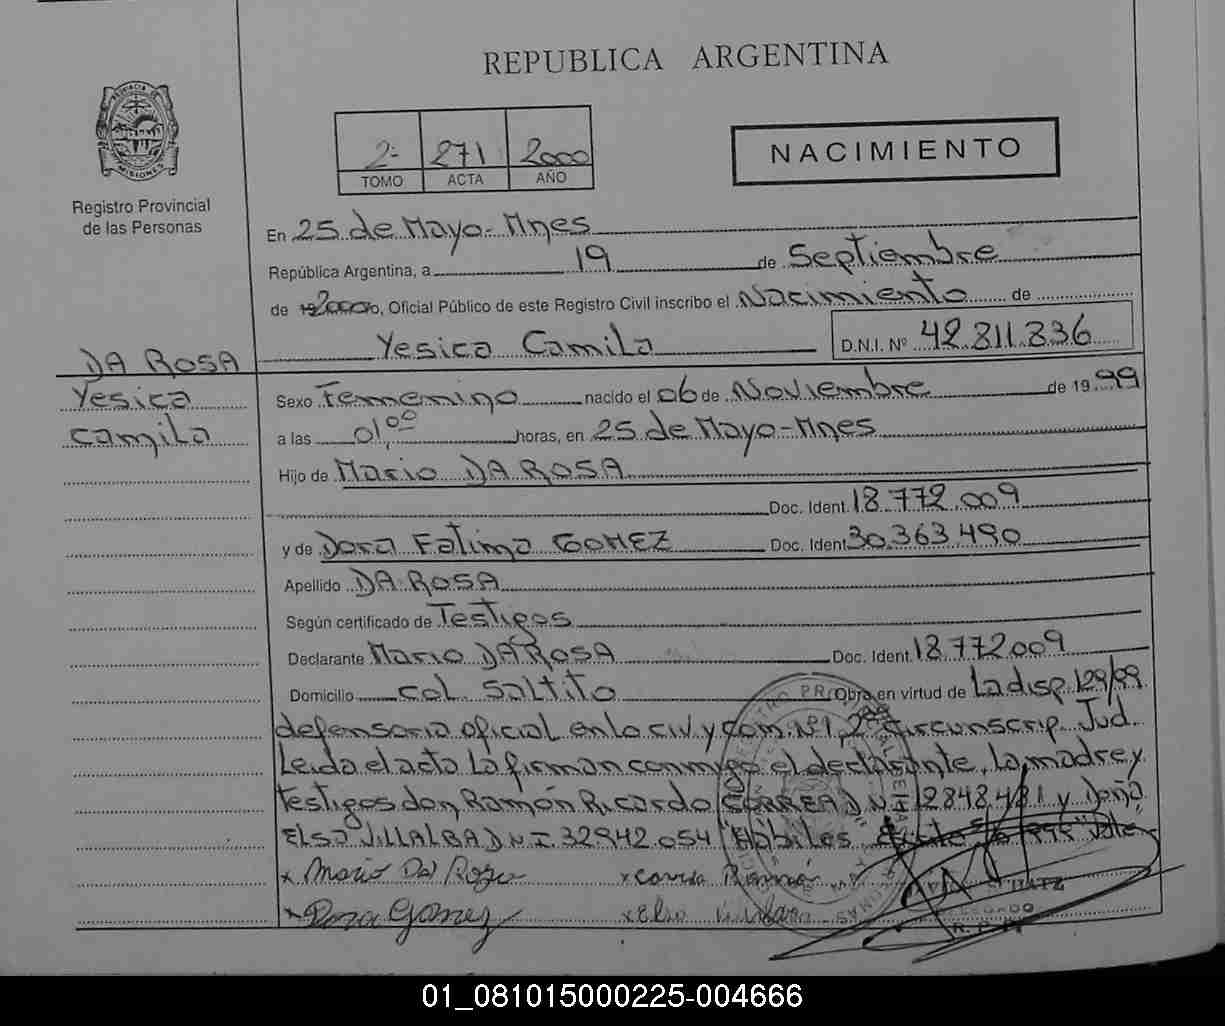 REPUBLICA ARGENTINA
PROVINCIA DE MISIONES
Registro Provincial
de las Personas
2- 271 2000
TOMO ACTA AÑO
NACIMIENTO
En 25 de Mayo - Mnes
República Argentina, a 19 de Septiembre
de 2000 yo, Oficial Público de este Registro Civil inscribo el Nacimiento de
Yesica Camila D.N.I. Nº 42.811.836
DA ROSA
Yesica
Camila
Sexo Femenino nacido el 06 de Noviembre de 19 99
a las 01,00 horas, en 25 de Mayo - Mnes
Hijo de Mario DA ROSA
Doc. Ident. 18.772.009
y de Dora Fatima GOMEZ Doc. Ident. 30.363.490
Apellido DA ROSA
Según certificado de Testigos
Declarante Mario DA ROSA Doc. Ident. 18.772.009
Domicilio Col. Saltito Obra en virtud de La disp. 129/99
defensoria oficial en lo civ. y Com. Nº 1, 2da circunscrip. Jud.
Leida el acta La firman conmigo el declarante, la madre y
testigos don Ramón Ricardo CORREA D.N.I. 2848.481 y Doña
Elsa VILLALBA D.N.I. 32.942.054 "Hábiles. "Vale"
x Mario Da Rosa x Correa Ramón
x Dora Gomez x Elsa
DELEGADO
R. P. P.
01_081015000225-004666